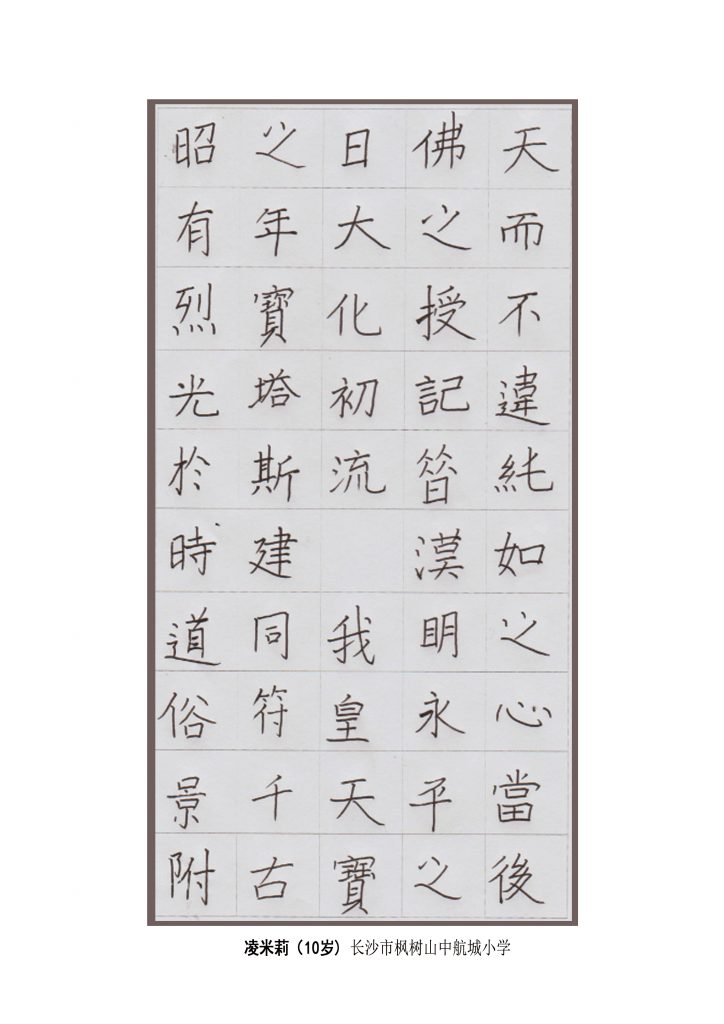 天而不違純如之心當後
佛之授記昝漠明永平之
日大化初流 我皇天寶
之年寶塔斯建同符千古
昭有烈光於時道俗景附
凌米莉（10岁）长沙市枫树山中航城小学